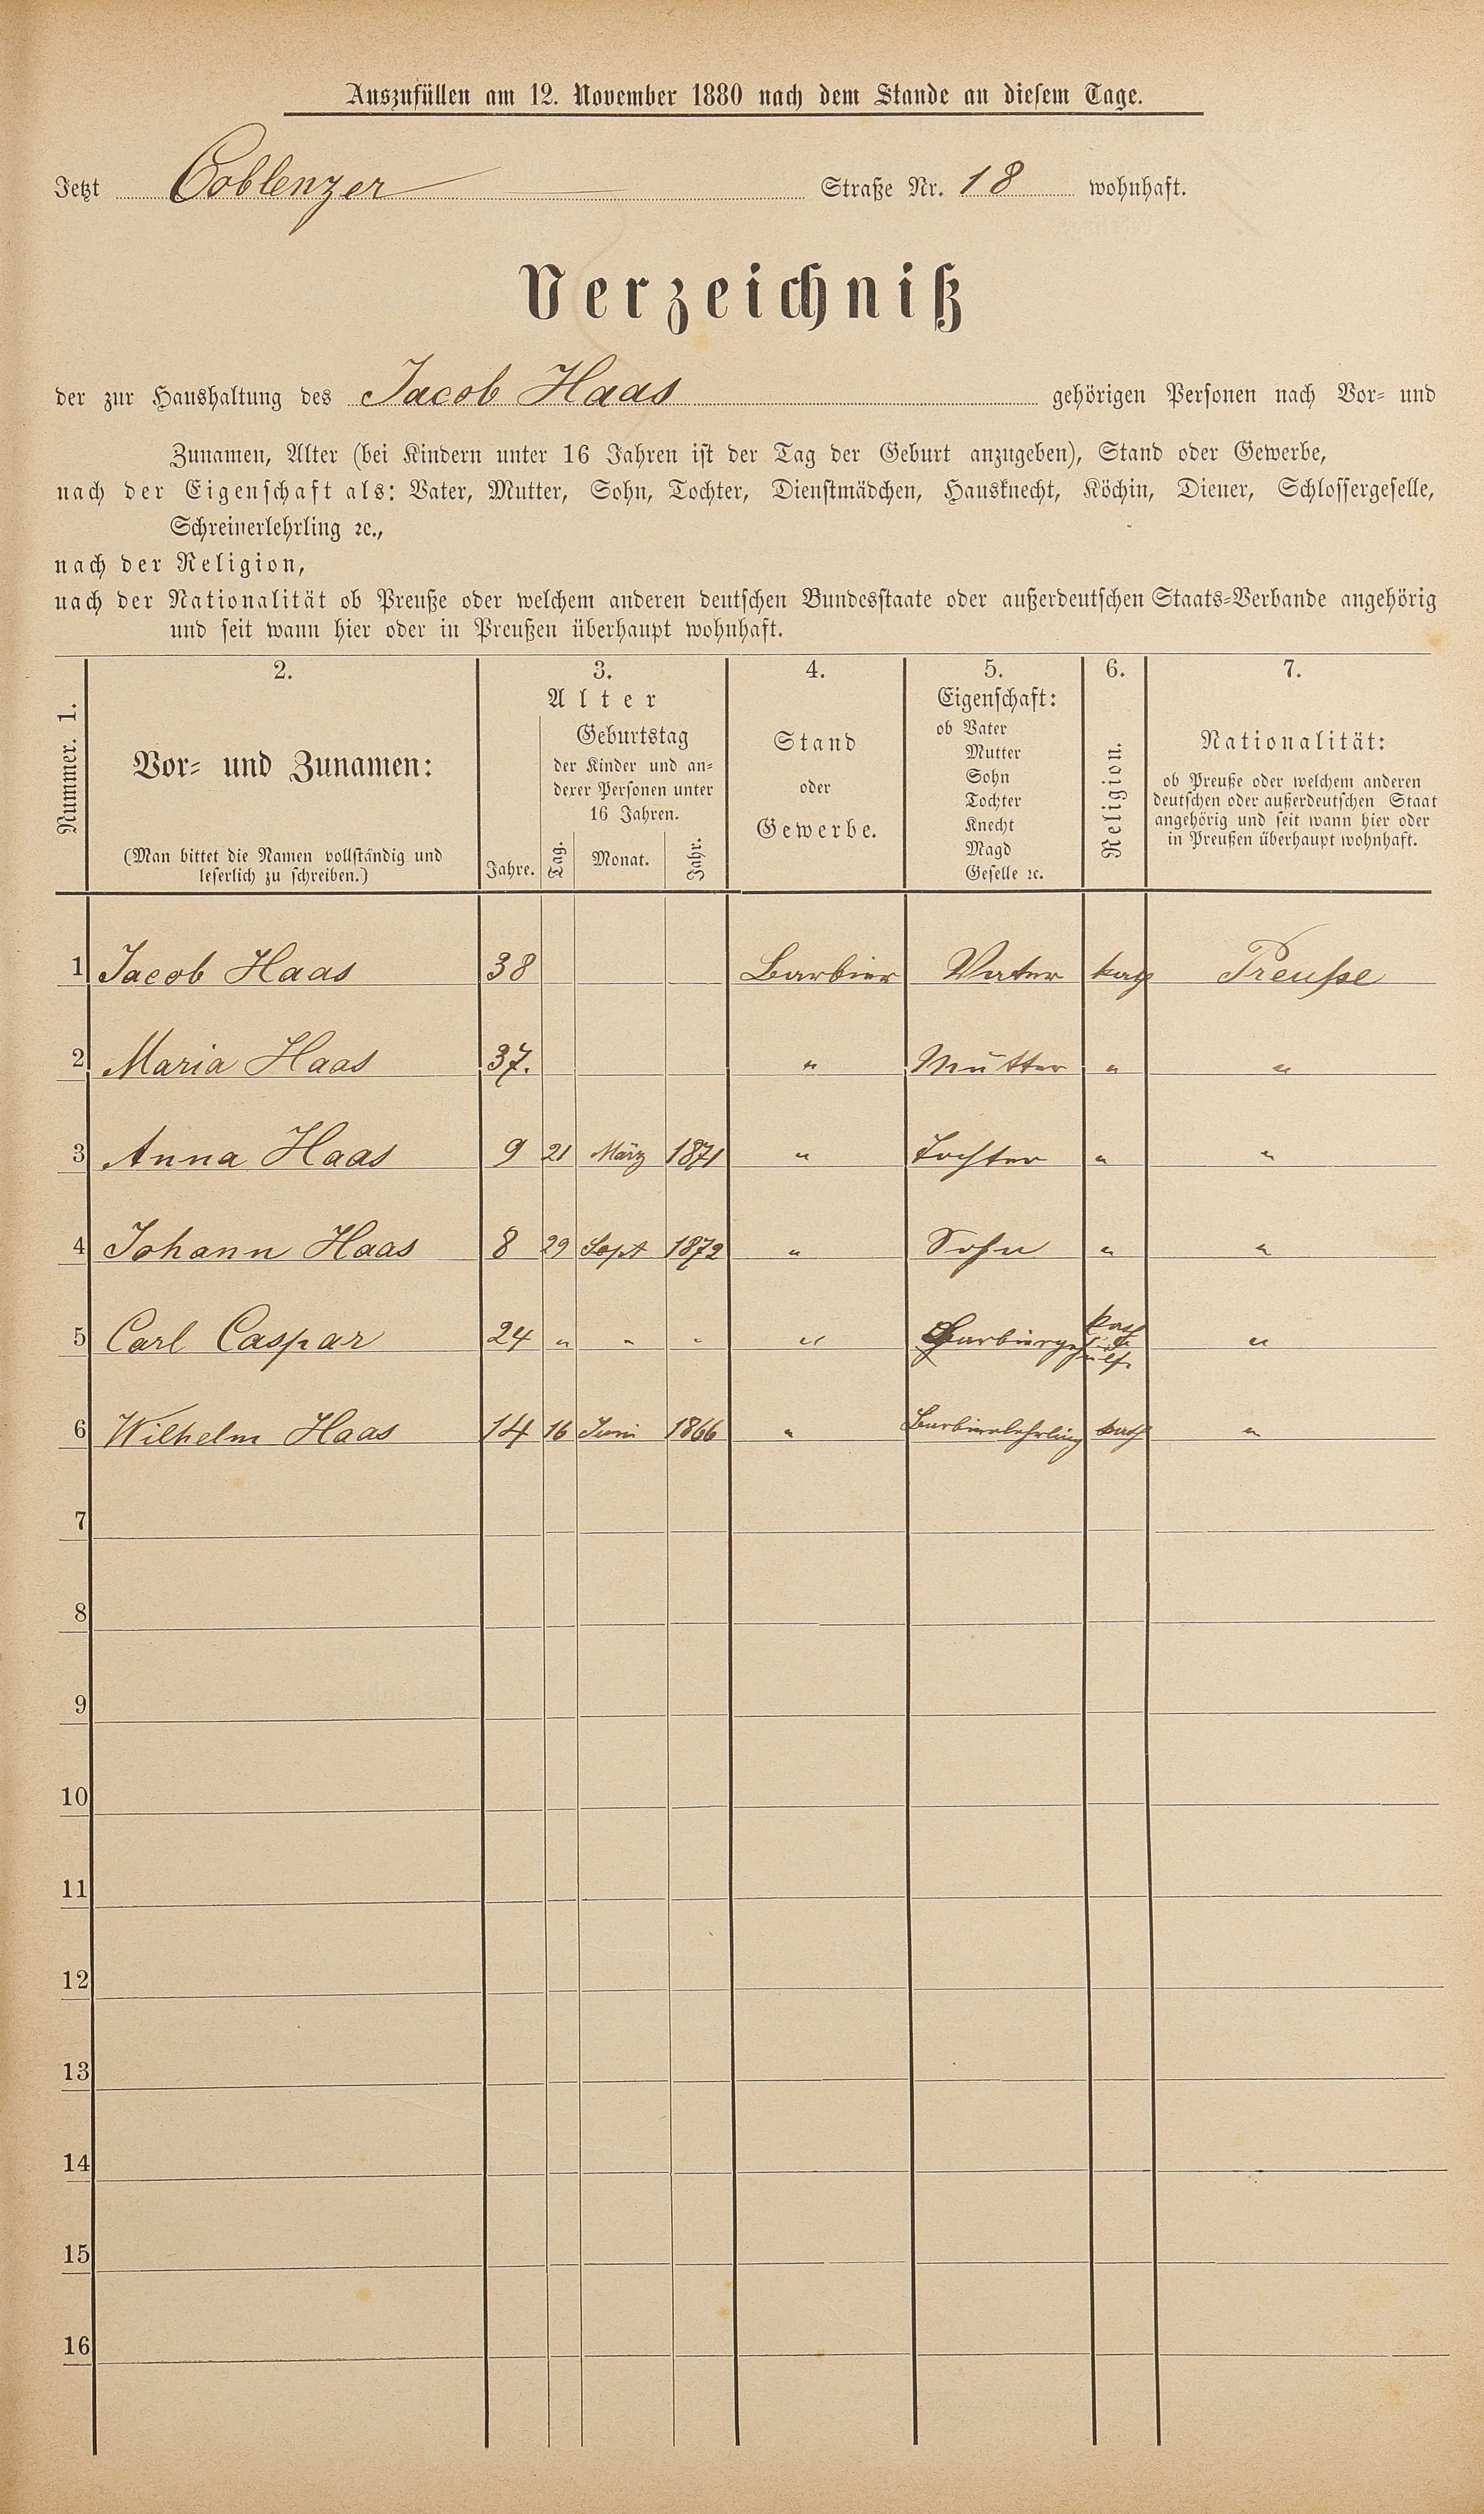 Auszufüllen am 12. November 1880 nach dem Stande an diesem Tage.
Jetzt Coblenzer Straße Nr. 18 wohnhaft.
Verzeichniß
der zur Haushaltung des Jacob Haas gehörigen Personen nach Vor- und
Zunamen, Alter (bei Kindern unter 16 Jahren ist der Tag der Geburt anzugeben), Stand oder Gewerbe,
nach der Eigenschaft als: Vater, Mutter, Sohn, Tochter, Dienstmädchen, Hausknecht, Köchin, Diener, Schlossergeselle,
Schreinerlehrling ꝛc.,
nach der Religion,
nach der Nationalität ob Preuße oder welchem anderen deutschen Bundesstaate oder außerdeutschen Staats-Verbande angehörig
und seit wann hier oder in Preußen überhaupt wohnhaft.
Nummer. 1.
2.
Vor- und Zunamen:
(Man bittet die Namen vollständig und
leserlich zu schreiben.)
3.
Alter
Jahre.
Geburtstag
der Kinder und an-
derer Personen unter
16 Jahren.
Tag. Monat. Jahr.
4.
Stand
oder
Gewerbe.
5.
Eigenschaft:
ob Vater
Mutter
Sohn
Tochter
Knecht
Magd
Geselle ꝛc.
6.
Religion.
7.
Nationalität:
ob Preuße oder welchem anderen
deutschen oder außerdeutschen Staat
angehörig und seit wann hier oder
in Preußen überhaupt wohnhaft.
1 Jacob Haas 38 Barbier Vater kath Preuße
2 Maria Haas 37. " Mutter " "
3 Anna Haas 9 21 März 1871 " Tochter " "
4 Johann Haas 8 29 Sept 1872 " Sohn " "
5 Carl Caspar 24 " " " " Barbiergehülfe kath "
6 Wilhelm Haas 14 16 Juni 1866 " Barbierlehrling kath "
7
8
9
10
11
12
13
14
15
16